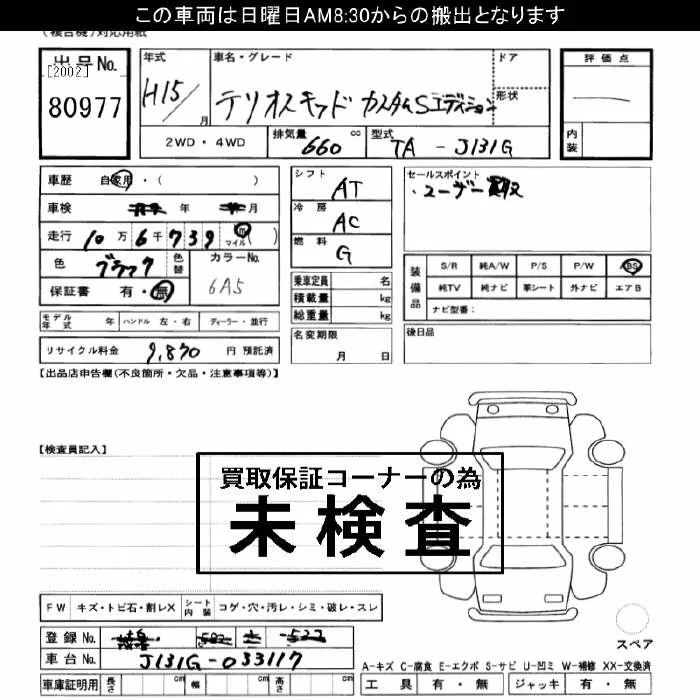 この車両は日曜日AM8:30からの搬出となります
(複合機)対応用紙
出品No. 年式 車名・グレード ドア 評価点
[2002]
80977 H15/ 月 テリオスキッド カスタムSエディション 形状 ―
2WD・4WD 排気量 660 cc 型式 TA - J131G 内装
車歴 自家用・( ) シフト AT セールスポイント
車検 年 月 冷房 AC ・ユーザー買取
走行 10万6千739 km マイル ( ) 燃料 G
色 ブラック 色替 カラーNo. 6A5
保証書 有・無
乗車定員 名
積載量 kg
総重量 kg
装備品 S/R 純A/W P/S P/W BS
純TV 純ナビ 革シート 外ナビ エアB
ナビ型番:
モデル年式 年 ハンドル 左・右 ディーラー・並行 名変期限 月 日 後日品
リサイクル料金 9,870 円 預託済
【出品店申告欄(不良箇所・欠品・注意事項等)】
【検査員記入】
買取保証コーナーの為
未検査
FW キズ・トビ石・割レX シート内装 コゲ・穴・汚レ・シミ・破レ・スレ
登録No.
スペア
車台No. J131G-033117
A-キズ C-腐食 E-エクボ S-サビ U-凹ミ W-補修 XX-交換済
車庫証明用 長さ cm 幅 cm 高さ cm 工具 有・無 ジャッキ 有・無